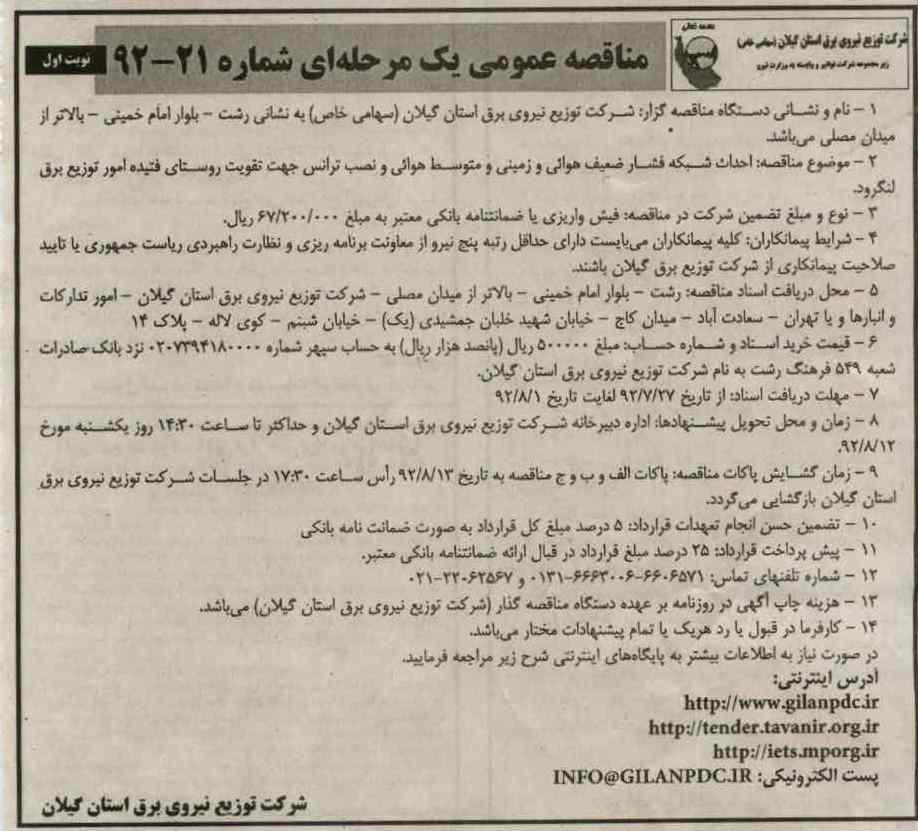 بسمه تعالی
شرکت توزیع نیروی برق استان گیلان (سهامی خاص)
زیر مجموعه شرکت توانیر و وابسته به وزارت نیرو
مناقصه عمومی یک مرحله‌ای شماره ۲۱-۹۲
نوبت اول
۱ - نام و نشانی دستگاه مناقصه گزار: شرکت توزیع نیروی برق استان گیلان (سهامی خاص) به نشانی رشت - بلوار امام خمینی - بالاتر از
میدان مصلی می‌باشد.
۲ - موضوع مناقصه: احداث شبکه فشار ضعیف هوائی و زمینی و متوسط هوائی و نصب ترانس جهت تقویت روستای فتیده امور توزیع برق
لنگرود.
۳ - نوع و مبلغ تضمین شرکت در مناقصه: فیش واریزی یا ضمانتنامه بانکی معتبر به مبلغ ۶۷/۲۰۰/۰۰۰ ریال.
۴ - شرایط پیمانکاران: کلیه پیمانکاران می‌بایست دارای حداقل رتبه پنج نیرو از معاونت برنامه ریزی و نظارت راهبردی ریاست جمهوری یا تایید
صلاحیت پیمانکاری از شرکت توزیع برق گیلان باشند.
۵ - محل دریافت اسناد مناقصه: رشت - بلوار امام خمینی - بالاتر از میدان مصلی - شرکت توزیع نیروی برق استان گیلان - امور تدارکات
و انبارها و یا تهران - سعادت آباد - میدان کاج - خیابان شهید خلبان جمشیدی (یک) - خیابان شبنم - کوی لاله - پلاک ۱۴
۶ - قیمت خرید اسناد و شماره حساب: مبلغ ۵۰۰۰۰۰ ریال (پانصد هزار ریال) به حساب سپهر شماره ۰۲۰۷۳۹۴۱۸۰۰۰۰ نزد بانک صادرات
شعبه ۵۴۹ فرهنگ رشت به نام شرکت توزیع نیروی برق استان گیلان.
۷ - مهلت دریافت اسناد: از تاریخ ۹۲/۷/۲۷ لغایت تاریخ ۹۲/۸/۱
۸ - زمان و محل تحویل پیشنهادها: اداره دبیرخانه شرکت توزیع نیروی برق استان گیلان و حداکثر تا ساعت ۱۴:۳۰ روز یکشنبه مورخ
۹۲/۸/۱۲.
۹ - زمان گشایش پاکات مناقصه: پاکات الف و ب و ج مناقصه به تاریخ ۹۲/۸/۱۳ رأس ساعت ۱۷:۳۰ در جلسات شرکت توزیع نیروی برق
استان گیلان بازگشایی می‌گردد.
۱۰ - تضمین حسن انجام تعهدات قرارداد: ۵ درصد مبلغ کل قرارداد به صورت ضمانت نامه بانکی
۱۱ - پیش پرداخت قرارداد: ۲۵ درصد مبلغ قرارداد در قبال ارائه ضمانتنامه بانکی معتبر.
۱۲ - شماره تلفنهای تماس: ۶۶۰۶۵۷۱-۶۶۶۳۰۰۶-۰۱۳۱ و ۲۲۰۶۲۵۶۷-۰۲۱
۱۳ - هزینه چاپ آگهی در روزنامه بر عهده دستگاه مناقصه گذار (شرکت توزیع نیروی برق استان گیلان) می‌باشد.
۱۴ - کارفرما در قبول یا رد هریک یا تمام پیشنهادات مختار می‌باشد.
در صورت نیاز به اطلاعات بیشتر به پایگاه‌های اینترنتی شرح زیر مراجعه فرمایید.
آدرس اینترنتی:
http://www.gilanpdc.ir
http://tender.tavanir.org.ir
http://iets.mporg.ir
پست الکترونیکی: INFO@GILANPDC.IR
شرکت توزیع نیروی برق استان گیلان